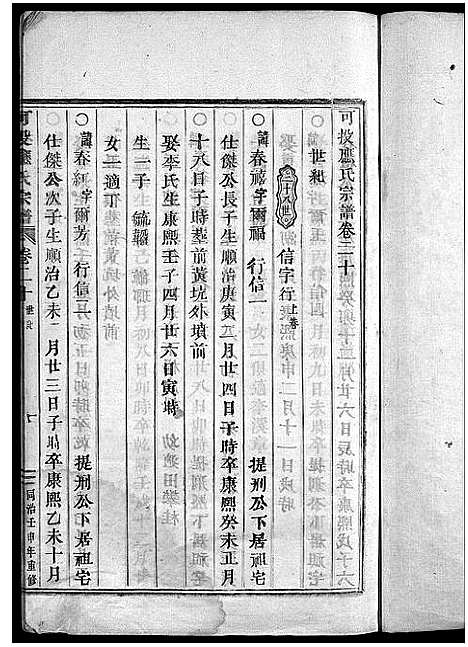 可投應氏宗譜卷二十
世紀
二十八世
信字行
上卷
○諱春禧字爾福 行信一 提刑公下居祖宅
仕傑公長子生順治庚寅二月廿四日子時卒康熙癸未正月
十八日子時塟前黃坑外墳前
娶李氏生康熙壬子四月廿六日寅時
生一子 毓
女二適
○諱春 字爾芳 行信二 提刑公下居祖宅
仕傑公次子生順治乙未 月廿三日子時卒康熙乙未十月
可投應氏宗譜 卷二十 世紀
一
同治壬申年重修